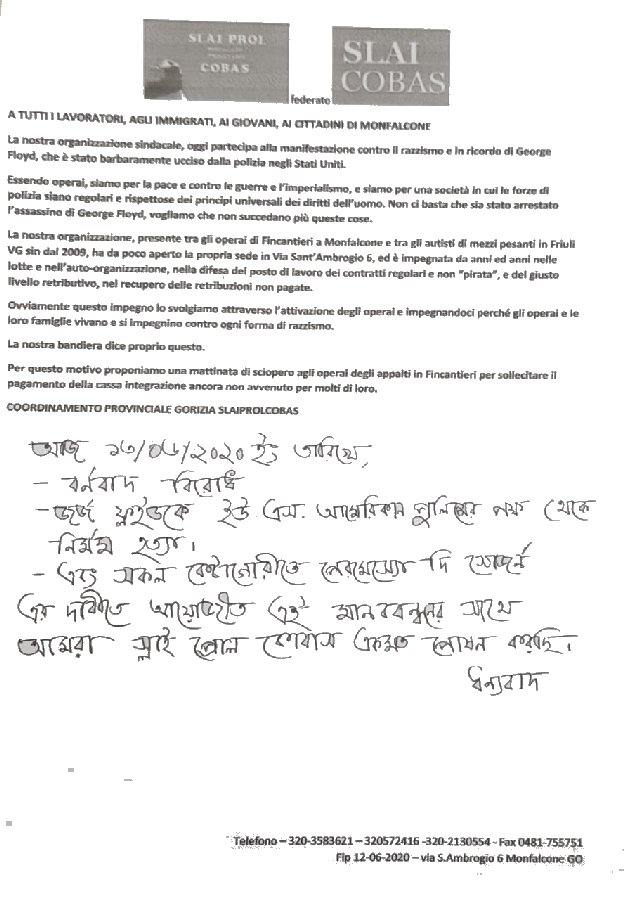 SLAI PROL
COBAS
SLAI
COBAS
federato
A TUTTI I LAVORATORI, AGLI IMMIGRATI, AI GIOVANI, AI CITTADINI DI MONFALCONE
La nostra organizzazione sindacale, oggi partecipa alla manifestazione contro il razzismo e in ricordo di George
Floyd, che è stato barbaramente ucciso dalla polizia negli Stati Uniti.
Essendo operai, siamo per la pace e contro le guerre e l'imperialismo, e siamo per una società in cui le forze di
polizia siano regolari e rispettose dei principi universali dei diritti dell'uomo. Non ci basta che sia stato arrestato
l'assassino di George Floyd, vogliamo che non succedano più queste cose.
La nostra organizzazione, presente tra gli operai di Fincantieri a Monfalcone e tra gli autisti di mezzi pesanti in Friuli
VG sin dal 2009, ha da poco aperto la propria sede in Via Sant'Ambrogio 6, ed è impegnata da anni ed anni nelle
lotte e nell'auto-organizzazione, nella difesa del posto di lavoro dei contratti regolari e non "pirata", e del giusto
livello retributivo, nel recupero delle retribuzioni non pagate.
Ovviamente questo impegno lo svolgiamo attraverso l'attivazione degli operai e impegnandoci perché gli operai e le
loro famiglie vivano e si impegnino contro ogni forma di razzismo.
La nostra bandiera dice proprio questo.
Per questo motivo proponiamo una mattinata di sciopero agli operai degli appalti in Fincantieri per sollecitare il
pagamento della cassa integrazione ancora non avvenuto per molti di loro.
COORDINAMENTO PROVINCIALE GORIZIA SLAIPROLCOBAS
আজ ১৩/০৬/২০২০ ইং তারিখে,
- বর্নবাদ বিরোধী
- জর্জ ফ্লইডকে ইউ এস. আমেরিকায় পুলিশের পক্ষ থেকে
নির্মম হত্যা।
- এবং সকল কেটাগোরীতে পেরমেস্যো দি সোজর্ন
এর দাবীতে আয়োজীত এই মানববন্ধনের সাথে
আমেরা স্লাই প্রোল কোবাস একমত পোষন করছি।
ধন্যবাদ
Telefono – 320-3583621 – 320572416 -320-2130554 - Fax 0481-755751
Fip 12-06-2020 – via S.Ambrogio 6 Monfalcone GO